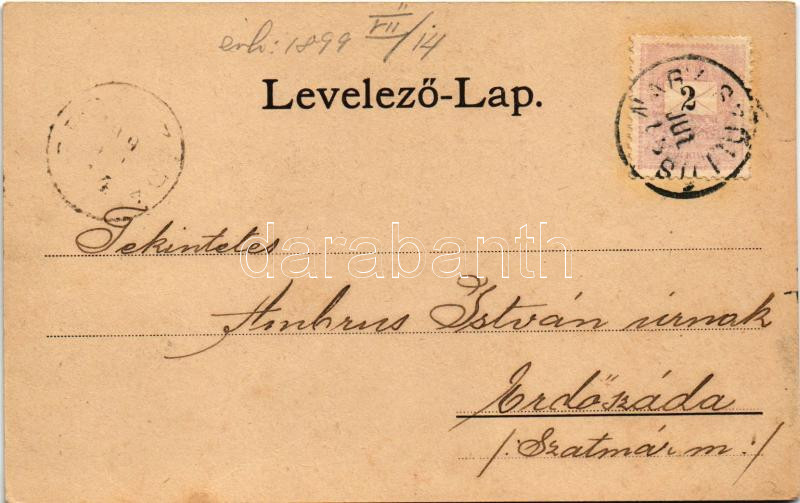 érk: 1899 VII/14
Levelező-Lap.
2
NAGY SZŐLL
JUL
darabanth
Tekintetes
Ambrus István úrnak
Erdőszáda
/: Szatmár m :/